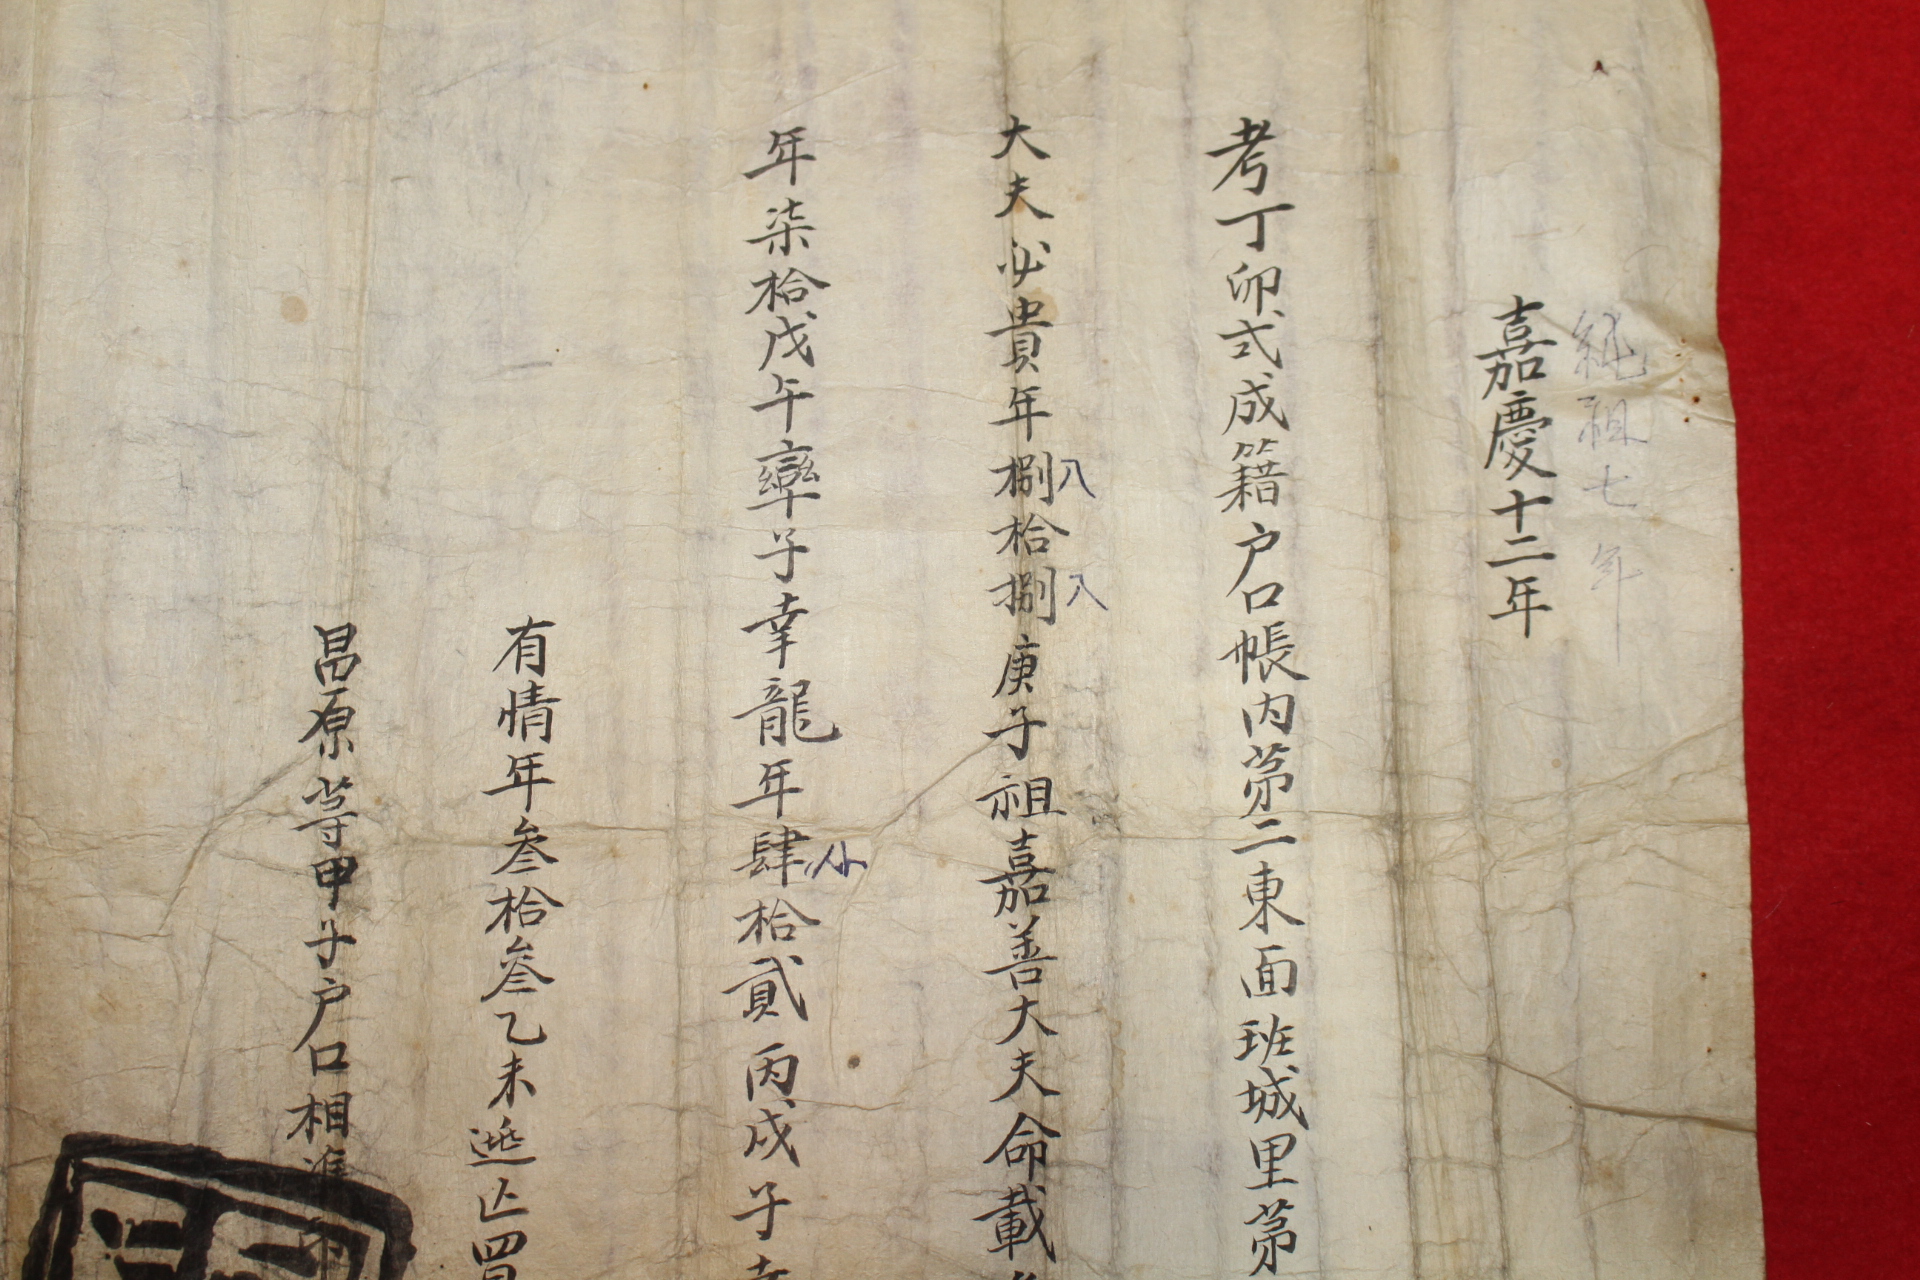 純祖七年
嘉慶十二年
考丁卯式成籍户口帳内苐二東面班城里苐
大夫必貴年捌拾捌庚子祖嘉善大夫命載
八
八
年柒拾戊午率子幸龍年肆拾貳丙戌子幸
有情年叁拾叁乙未逃亡買
昌原等甲子户口相準印